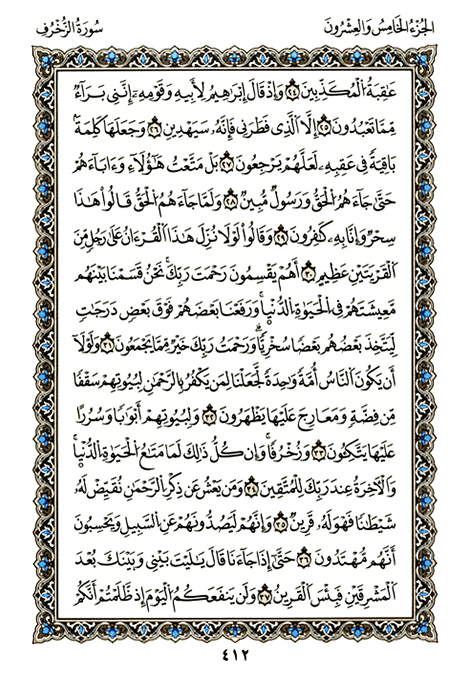 الجُزْءُ الخَامِسُ وَالعِشْرُونَ
سُورَةُ الزُّخْرُفِ
عَٰقِبَةُ الْمُكَذِّبِينَ ٢٤ وَإِذْ قَالَ إِبْرَٰهِيمُ لِأَبِيهِ وَقَوْمِهِۦ إِنَّنِي بَرَآءٌ
مِّمَّا تَعْبُدُونَ ٢٥ إِلَّا الَّذِي فَطَرَنِي فَإِنَّهُۥ سَيَهْدِينِ ٢٦ وَجَعَلَهَا كَلِمَةَۢ
بَاقِيَةً فِي عَقِبِهِۦ لَعَلَّهُمْ يَرْجِعُونَ ٢٧ بَلْ مَتَّعْتُ هَٰٓؤُلَآءِ وَءَابَآءَهُمْ
حَتَّىٰ جَآءَهُمُ الْحَقُّ وَرَسُولٌ مُّبِينٌ ٢٨ وَلَمَّا جَآءَهُمُ الْحَقُّ قَالُوا هَٰذَا
سِحْرٌ وَإِنَّا بِهِۦ كَٰفِرُونَ ٢٩ وَقَالُوا لَوْلَا نُزِّلَ هَٰذَا الْقُرْءَانُ عَلَىٰ رَجُلٍ مِّنَ
الْقَرْيَتَيْنِ عَظِيمٍ ٣٠ أَهُمْ يَقْسِمُونَ رَحْمَتَ رَبِّكَ نَحْنُ قَسَمْنَا بَيْنَهُم
مَّعِيشَتَهُمْ فِي الْحَيَوٰةِ الدُّنْيَا وَرَفَعْنَا بَعْضَهُمْ فَوْقَ بَعْضٍ دَرَجَٰتٍ
لِّيَتَّخِذَ بَعْضُهُم بَعْضًا سُخْرِيًّا وَرَحْمَتُ رَبِّكَ خَيْرٌ مِّمَّا يَجْمَعُونَ ٣١ وَلَوْلَا
أَن يَكُونَ النَّاسُ أُمَّةً وَٰحِدَةً لَّجَعَلْنَا لِمَن يَكْفُرُ بِالرَّحْمَٰنِ لِبُيُوتِهِمْ سَقْفًا
مِّن فِضَّةٍ وَمَعَارِجَ عَلَيْهَا يَظْهَرُونَ ٣٢ وَلِبُيُوتِهِمْ أَبْوَٰبًا وَسُرُرًا
عَلَيْهَا يَتَّكِـُٔونَ ٣٣ وَزُخْرُفًا وَإِن كُلُّ ذَٰلِكَ لَمَا مَتَٰعُ الْحَيَوٰةِ الدُّنْيَا
وَالْءَاخِرَةُ عِندَ رَبِّكَ لِلْمُتَّقِينَ ٣٤ وَمَن يَعْشُ عَن ذِكْرِ الرَّحْمَٰنِ نُقَيِّضْ لَهُۥ
شَيْطَٰنًا فَهْوَ لَهُۥ قَرِينٌ ٣٥ وَإِنَّهُمْ لَيَصُدُّونَهُمْ عَنِ السَّبِيلِ وَيَحْسِبُونَ
أَنَّهُم مُّهْتَدُونَ ٣٦ حَتَّىٰ إِذَا جَآءَنَا قَالَ يَٰلَيْتَ بَيْنِي وَبَيْنَكَ بُعْدَ
الْمَشْرِقَيْنِ فَبِئْسَ الْقَرِينُ ٣٧ وَلَن يَنفَعَكُمُ الْيَوْمَ إِذ ظَّلَمْتُمْ أَنَّكُمْ
٤١٢